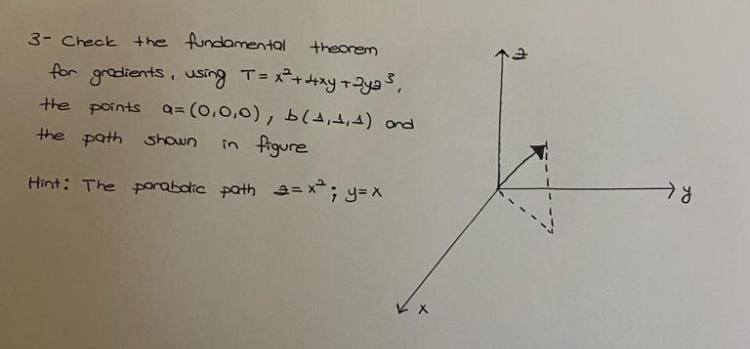 3- Check the fundamental theorem
for gradients, using T = x² + 4xy + 2yz³,
the points a = (0,0,0), b(1,1,1) and
the path shown in figure
Hint: The parabolic path z = x² ; y = x
z
y
x